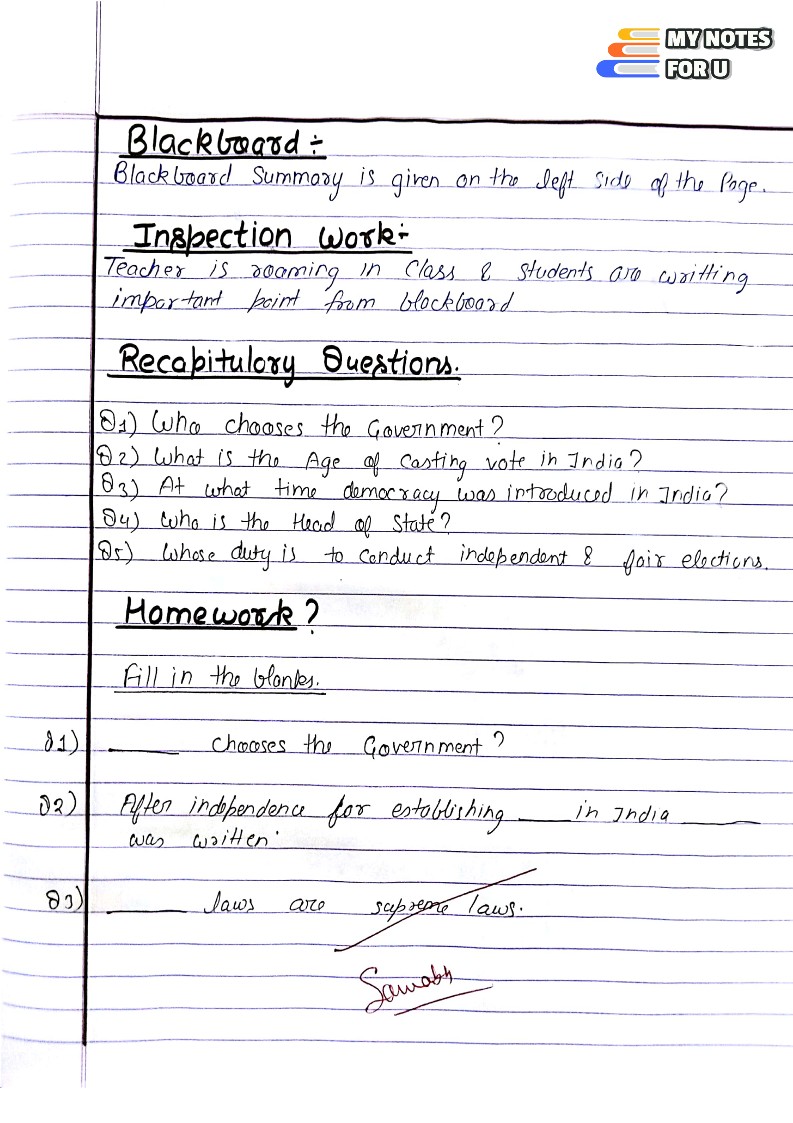 MY NOTES
FOR U
Blackboard÷
Blackboard Summary is given on the left side of the Page.
Inspection Work:-
Teacher is roaming in Class & students are writting
important point from blackboard
Recapitulory Questions.
Q1) Who chooses the Government?
Q2) What is the Age of casting vote in India?
Q3) At what time democracy was introduced in India?
Q4) Who is the Head of State?
Q5) Whose duty is to conduct independent & fair elections.
Homework?
Fill in the blanks.
Q1) ______ chooses the Government?
Q2) After independence for establishing ____ in India ______
was written.
Q3) ______ laws are supreme laws.
Saurabh